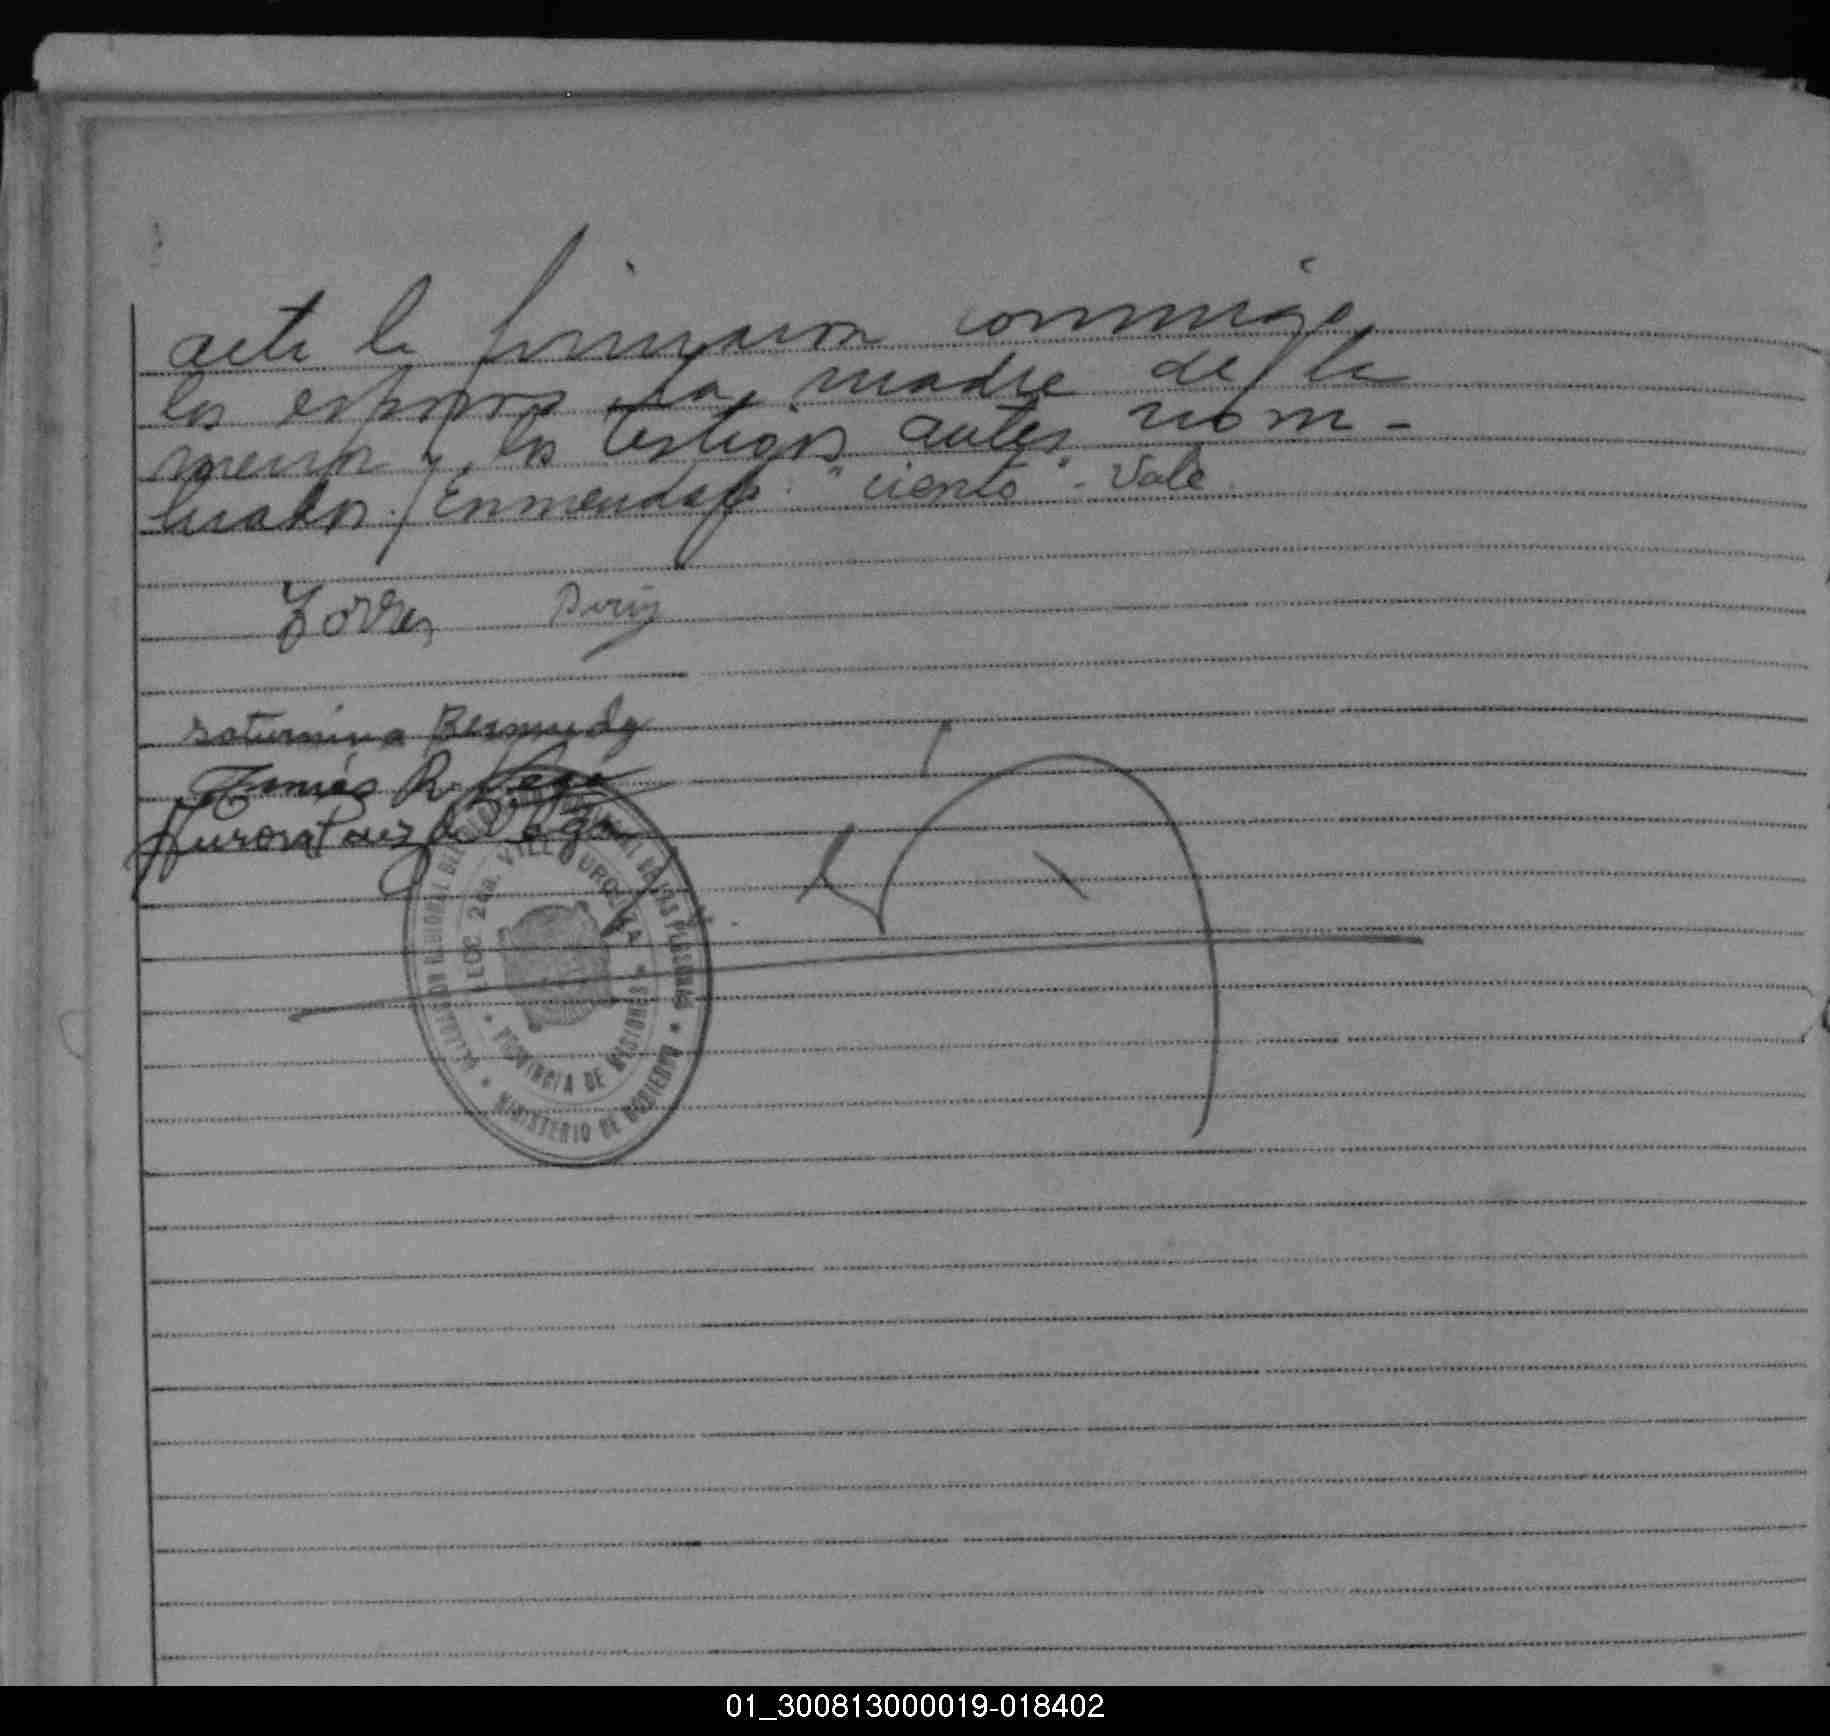 acta la firmaron conmigo,
los esposos, la madre de la
menor y los testigos antes nom-
brados./Enmendado: "ciento"-Vale.
Torres
Saturnina Bermudez
Tomás R. Vega
Aurora de Vega
DELEGACION REGIONAL DEL REGISTRO PROVINCIAL DE LAS PERSONAS * MINISTERIO DE GOBIERNO *
2da. VILLA URQUIZA * PROVINCIA DE MISIONES *
01_300813000019-018402